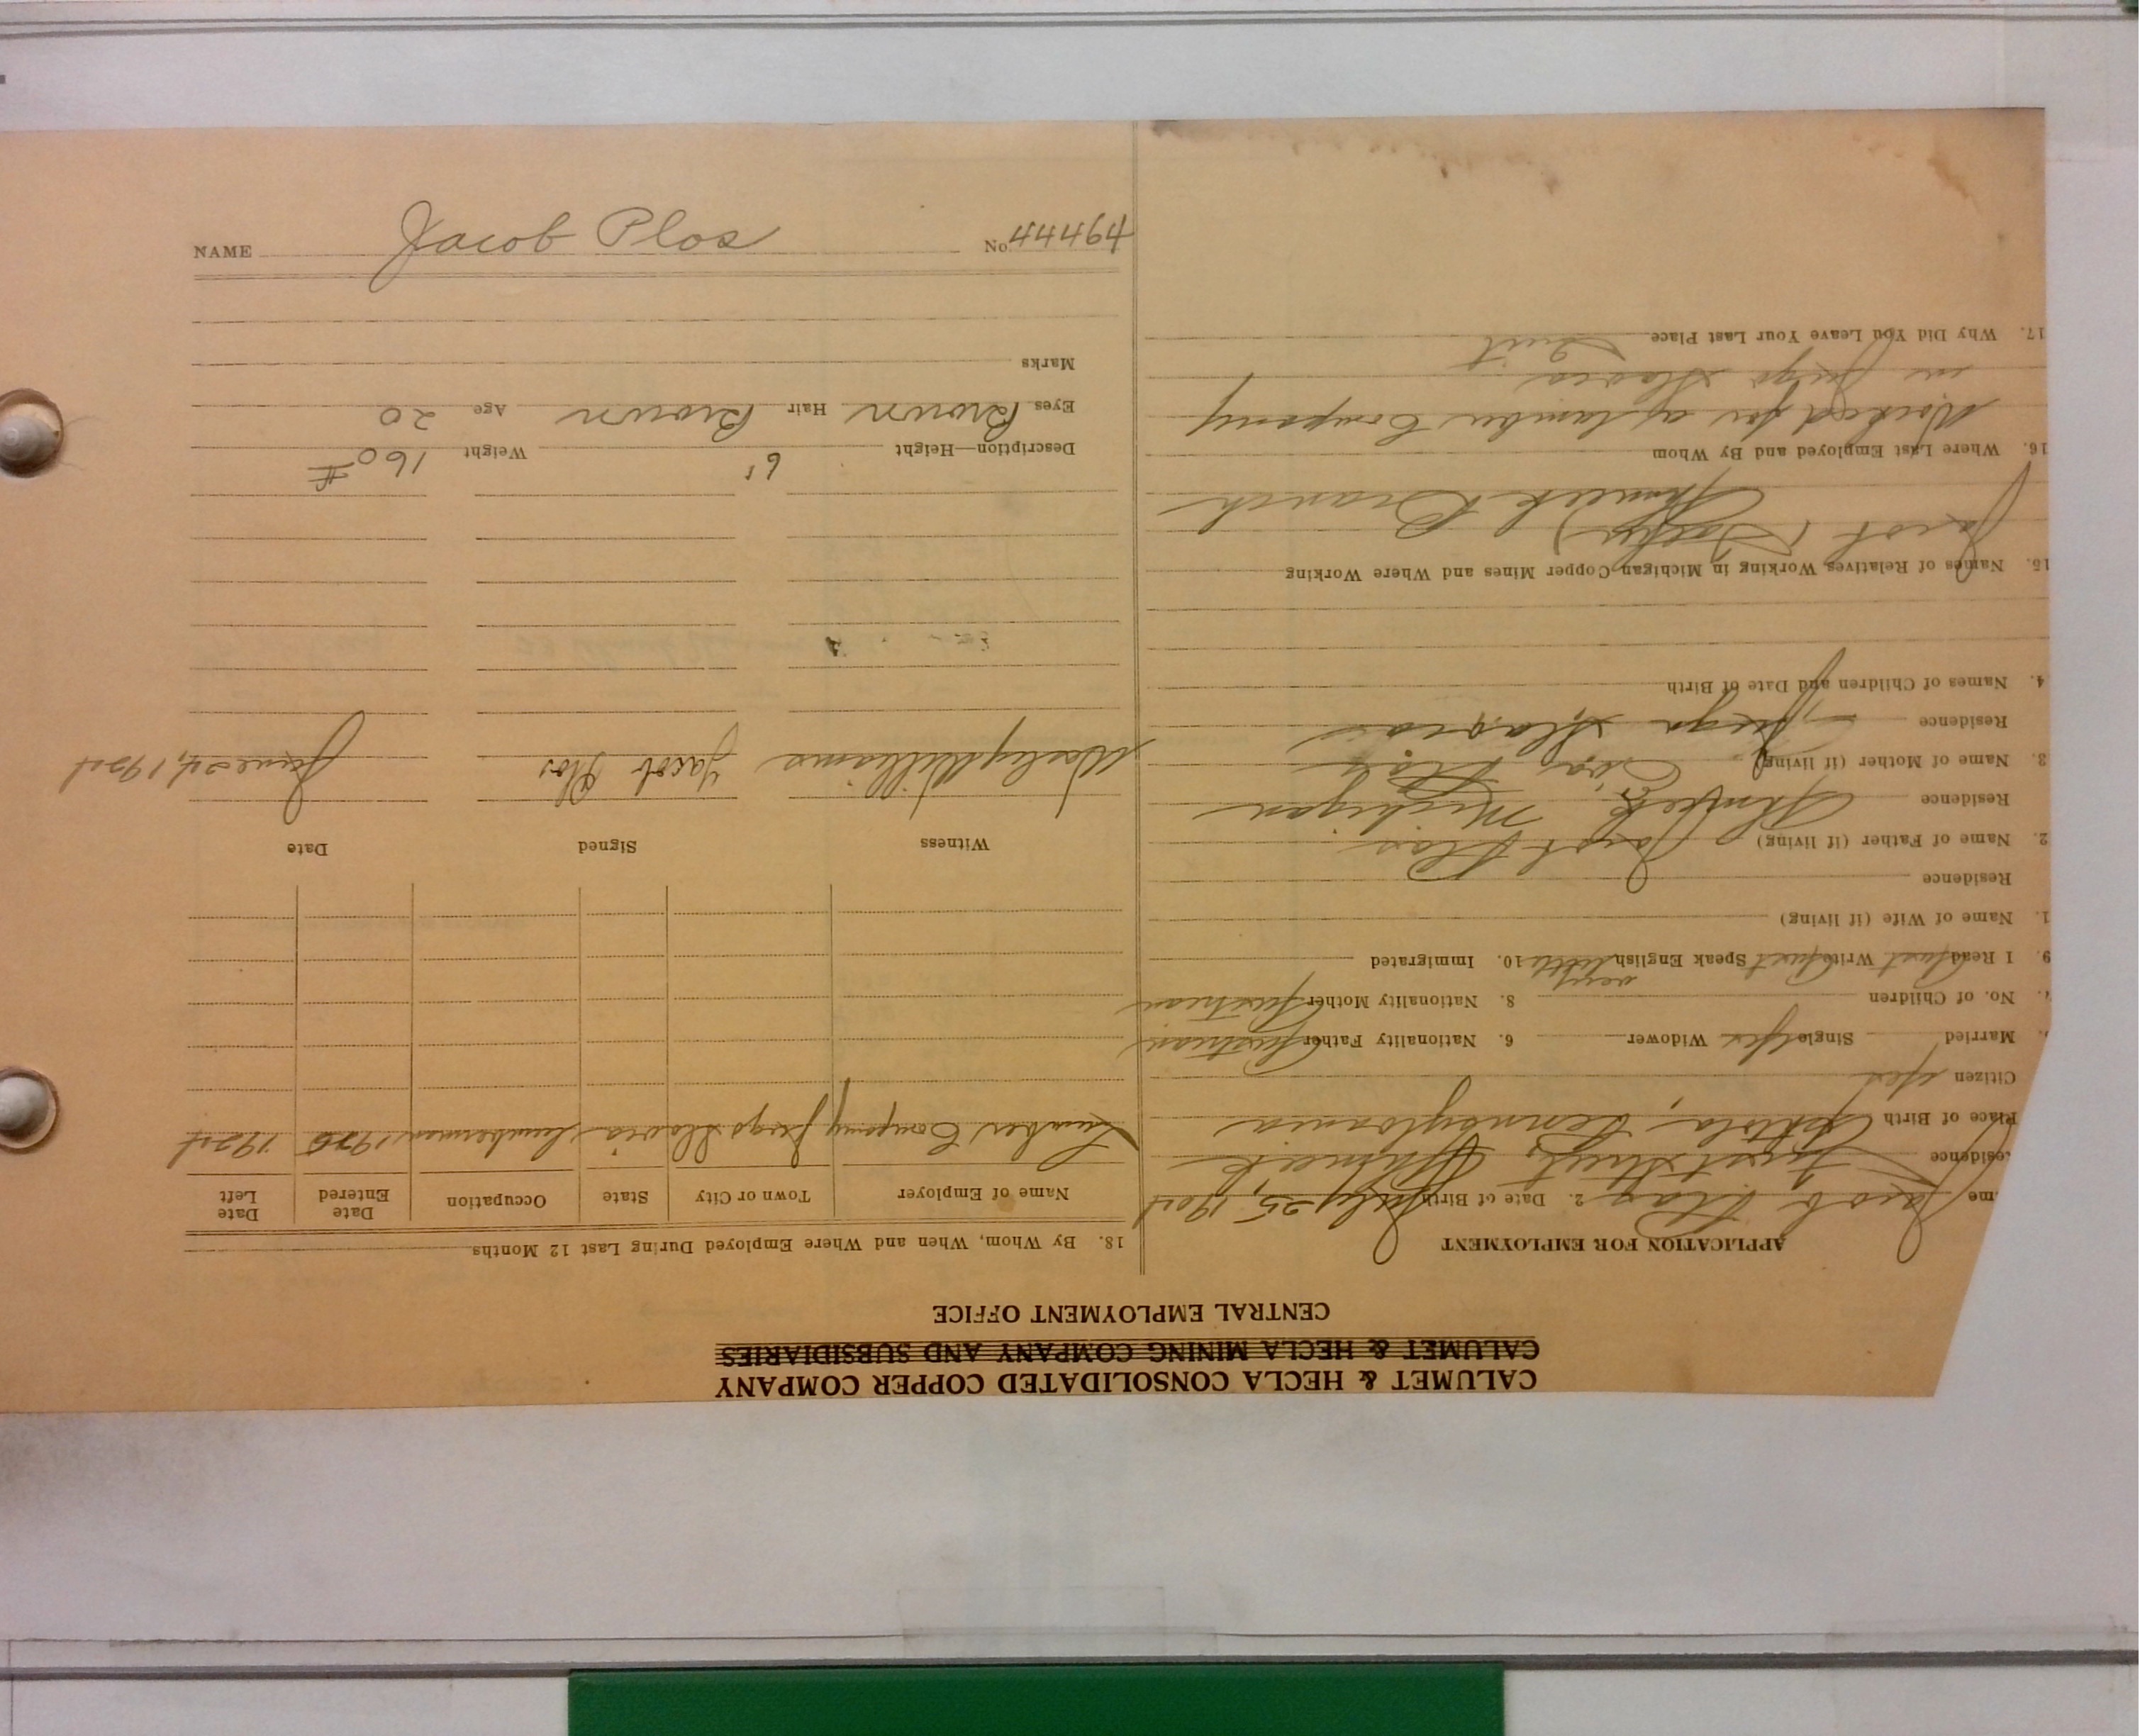 CALUMET & HECLA CONSOLIDATED COPPER COMPANY
CALUMET & HECLA MINING COMPANY AND SUBSIDIARIES
CENTRAL EMPLOYMENT OFFICE
APPLICATION FOR EMPLOYMENT
me Jacob Plos 2. Date of Birth July 25, 1904
esidence First Street, Ahmeek
Place of Birth Pennsylvania
Citizen Yes
Married Single Yes Widower 6. Nationality Father Austrian
No. of Children 8. Nationality Mother Austrian
9. I Read Write Speak English very little 10. Immigrated
1. Name of Wife (if living)
Residence
2. Name of Father (if living) Jacob Plos
Residence Ahmeek, Michigan
3. Name of Mother (if living) Eva Plos
Residence Jugo Slavia
4. Names of Children and Date of Birth
15. Names of Relatives Working in Michigan Copper Mines and Where Working
Jacob (Father) Ahmeek Branch
16. Where Last Employed and By Whom
Worked for a lumber Company
in Jugo Slavia
17. Why Did You Leave Your Last Place Quit
18. By Whom, When and Where Employed During Last 12 Months
Name of Employer Town or City State Occupation Date Entered Date Left
Lumber Company Jugo Slavia Lumberman 1920 1924
Witness Signed Date
Wesley Williams Jacob Plos June 24, 1924
Description—Height 6' Weight 160#
Eyes Brown Hair Brown Age 20
Marks
NAME Jacob Plos No. 44464